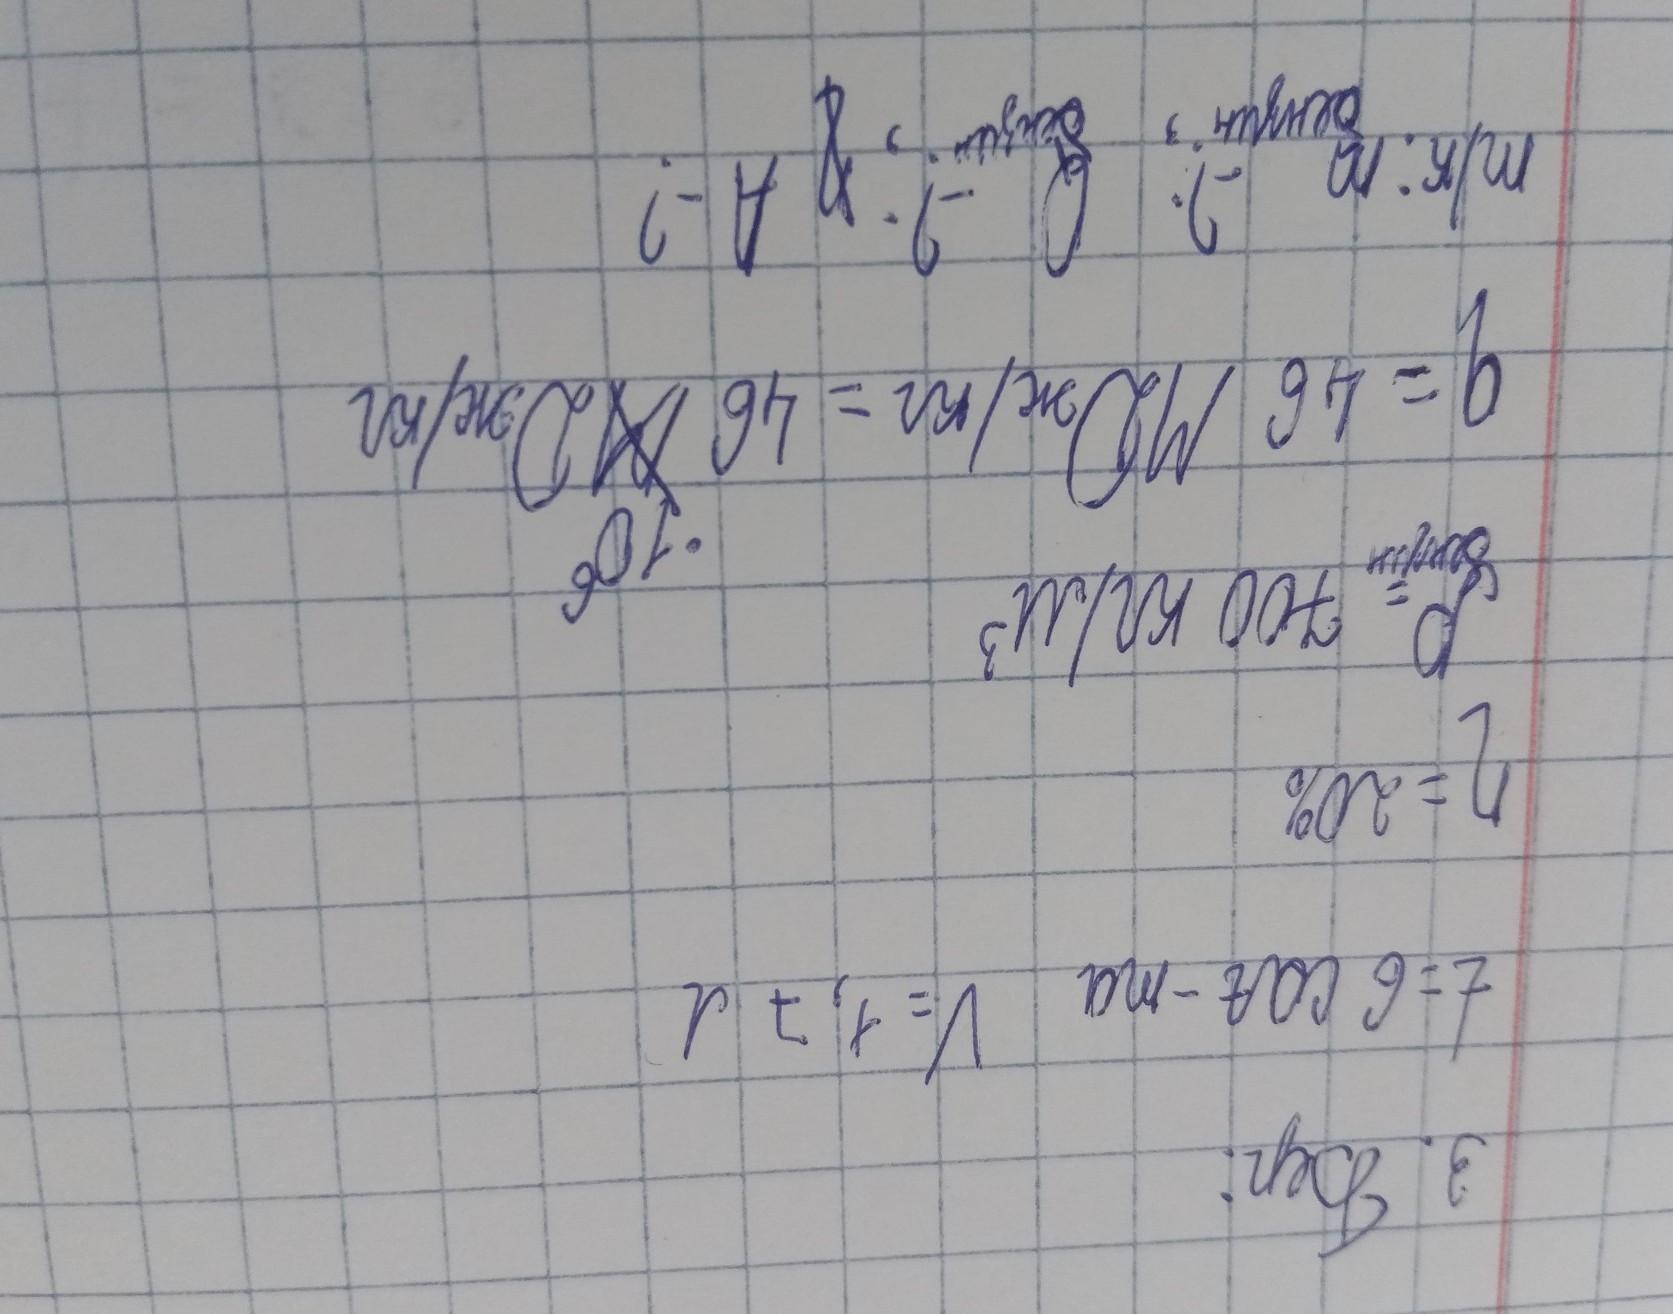 3. Бер:
t=6 саат-та V=1,7 л
η=20%
ρбензин=700 кг/м³
q=46 МДж/кг=46·10⁶ Дж/кг
т/к: mбензин-?; Qбензин-?; A-?